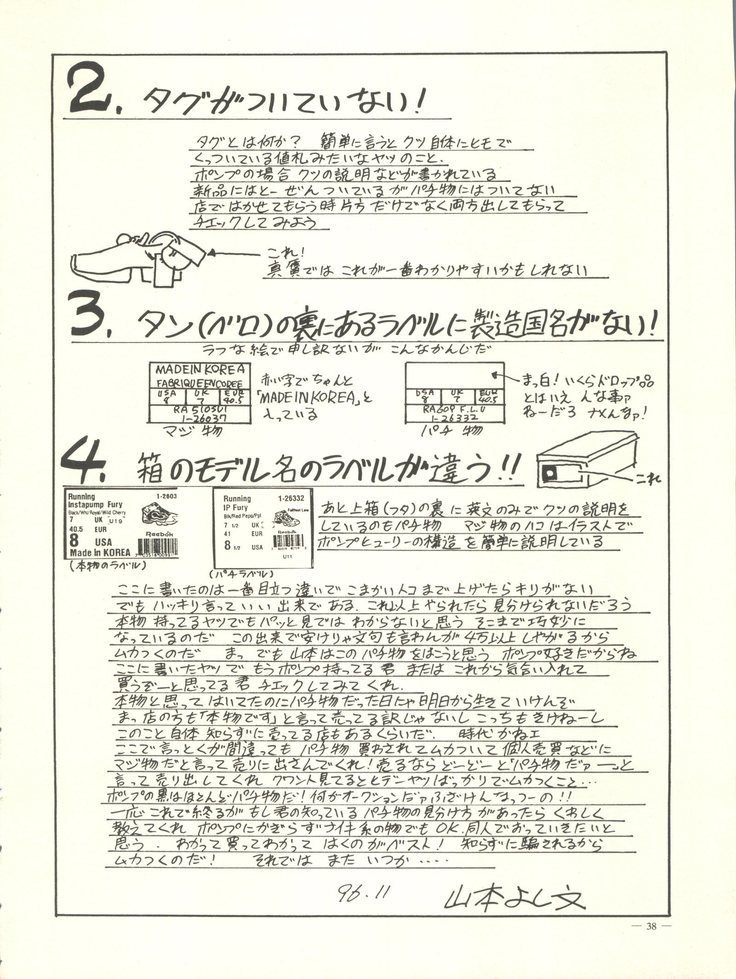 2. タグがついていない!
タグとは何か? 簡単に言うとクツ自体にヒモで
くっついている値札みたいなヤツのこと.
ポンプの場合 クツの説明などが書かれている
新品にはとーぜんついているがパチ物にはついてない
店ではかせてもらう時片方だけでなく両方出してもらって
チェックしてみよう
これ!
真贋では これが一番わかりやすいかもしれない
3. タン(ベロ)の裏にあるラベルに製造国名がない!
ラフな絵で申し訳ないが こんなかんじだ
MADE IN KOREA
FABRIQUE EN COREE
USA 8 UK 7 EUR 40.5
RA 510SU1
1-26037
マジ物
赤い字でちゃんと
「MADE IN KOREA」と
入っている
USA 8 UK 7 EUR 40.5
RA609 F.L.U
1-26332
パチ物
まっ白! いくらドロップ品
とはいえ んな事ァ
ねーだろ ナメんなァ!
4. 箱のモデル名のラベルが違う!!
これ
Running 1-2603
Instapump Fury
7 UK U19
40.5 EUR
8 USA
Reebok
Made in KOREA
(本物のラベル)
Running 1-26332
IP Fury
7 1/2 UK
41 EUR
8 1/2 USA
Reebok
U11
(パチラベル)
あと上箱(フタ)の裏に英文のみでクツの説明を
しているのもパチ物 マジ物のハコはイラストで
ポンプヒューリーの構造を簡単に説明している
ここに書いたのは一番目立つ違いで こまかいトコまで上げたらキリがない
でもハッキリ言っていい出来である. これ以上やられたら見分けられないだろう
本物持ってるヤツでもパッと見ではわからないと思う そこまで巧妙に
なっているのだ この出来で安けりゃ文句も言わんが4万以上しやがるから
ムカつくのだ まっ でも山本はこのパチ物をはこうと思う ポンプ好きだからね
ここに書いたヤツで もうポンプ持ってる君 またはこれから気合い入れて
買うぞーと思ってる君 チェックしてみてくれ.
本物と思って はいてたのにパチ物だった日にゃ明日から生きていけんぞ
まっ店の方も「本物です」と言って売ってる訳じゃないし こっちもきけねーし
このこと自体 知らずに売ってる店もあるくらいだ. 時代かねェ
ここで言っとくが間違っても パチ物 買わされてムカついて個人売買などに
マジ物だと言って売りに出さんでくれ! 売るならどーどーと「パチ物だァーっ」と
言って売り出してくれ クウント見てるとヒデーヤツばっかりでムカつくこと…
ポンプの黒はほとんどパチ物だ! 何がオークションだァ ふざけんなっつーの!!
一応これで終るがもし君の知っているパチ物の見分け方があったらくわしく
教えてくれ ポンプにかぎらずナイキ系の物でもOK. 同人でおっていきたいと
思う. わかって買ってわかって はくのがベスト! 知らずに騙されるから
ムカつくのだ! それでは また いつか ‥‥
96.11 山本よし文
— 38 —